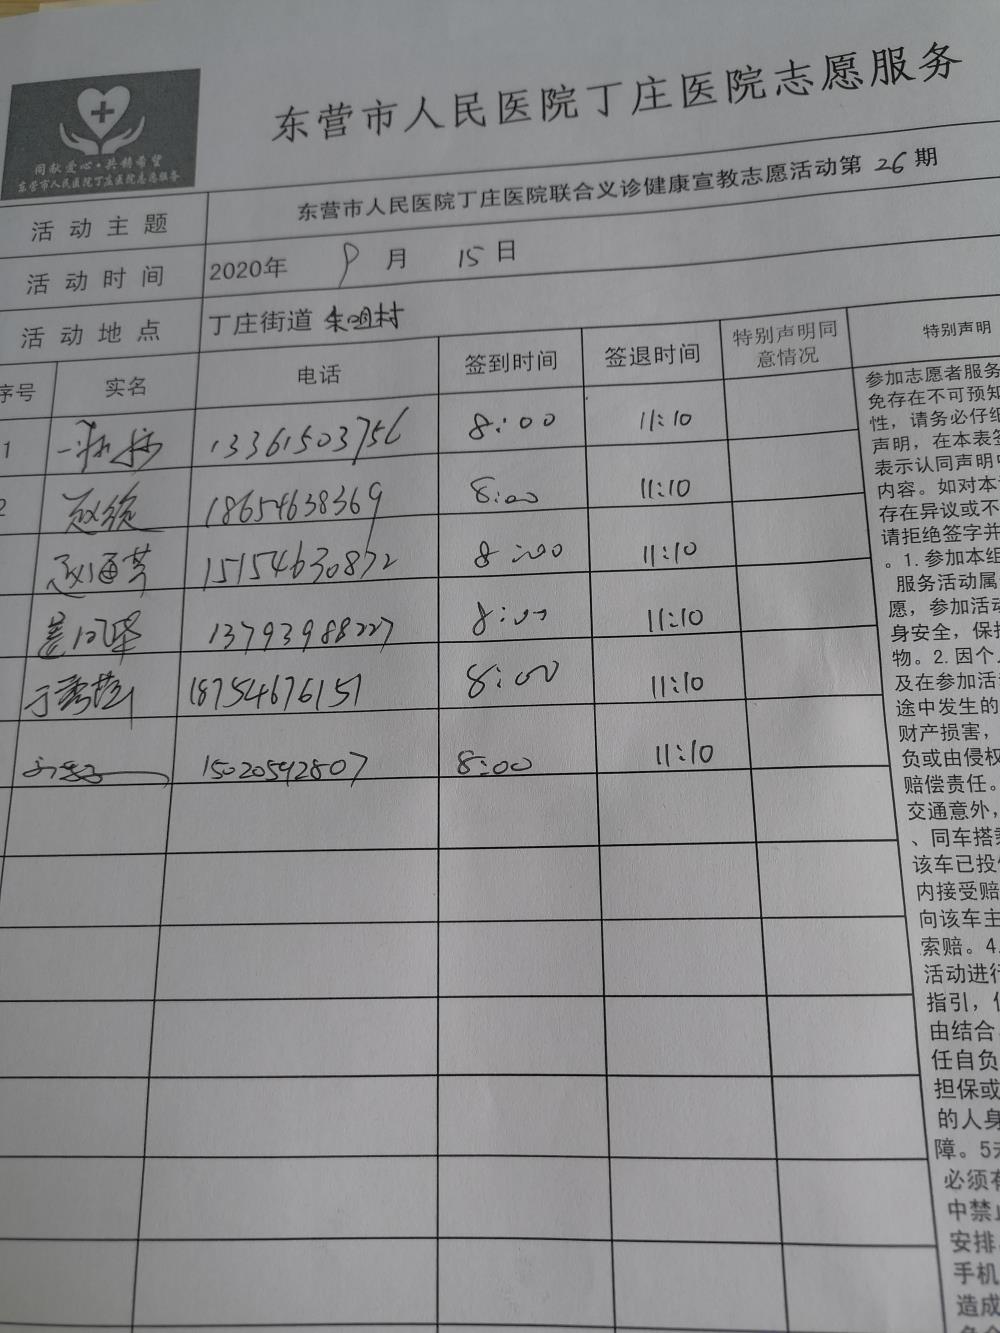 同献爱心·共铸希望
东营市人民医院丁庄医院志愿服务
东营市人民医院丁庄医院志愿服务
活动主题 东营市人民医院丁庄医院联合义诊健康宣教志愿活动第26期
活动时间 2020年 9月 15日
活动地点 丁庄街道
序号 实名 电话 签到时间 签退时间 特别声明同意情况 特别声明
1 13361503756 8:00 11:10
2 18654638369 8:00 11:10
15154630872 8:00 11:10
13793988227 8:00 11:10
18754676151 8:00 11:10
15020542807 8:00 11:10
参加志愿者服务
免存在不可预知
性，请务必仔细
声明，在本表签
表示认同声明中
内容。如对本
存在异议或不
请拒绝签字并
。1.参加本组
服务活动属
愿，参加活动
身安全，保
物。2.因个
及在参加活
途中发生的
财产损害，
负或由侵权
赔偿责任。
交通意外，
、同车搭乘
该车已投
内接受赔
向该车主
索赔。4
活动进行
指引，
由结合
任自负
担保或
的人身
障。5
必须有
中禁止
安排
手机
造成